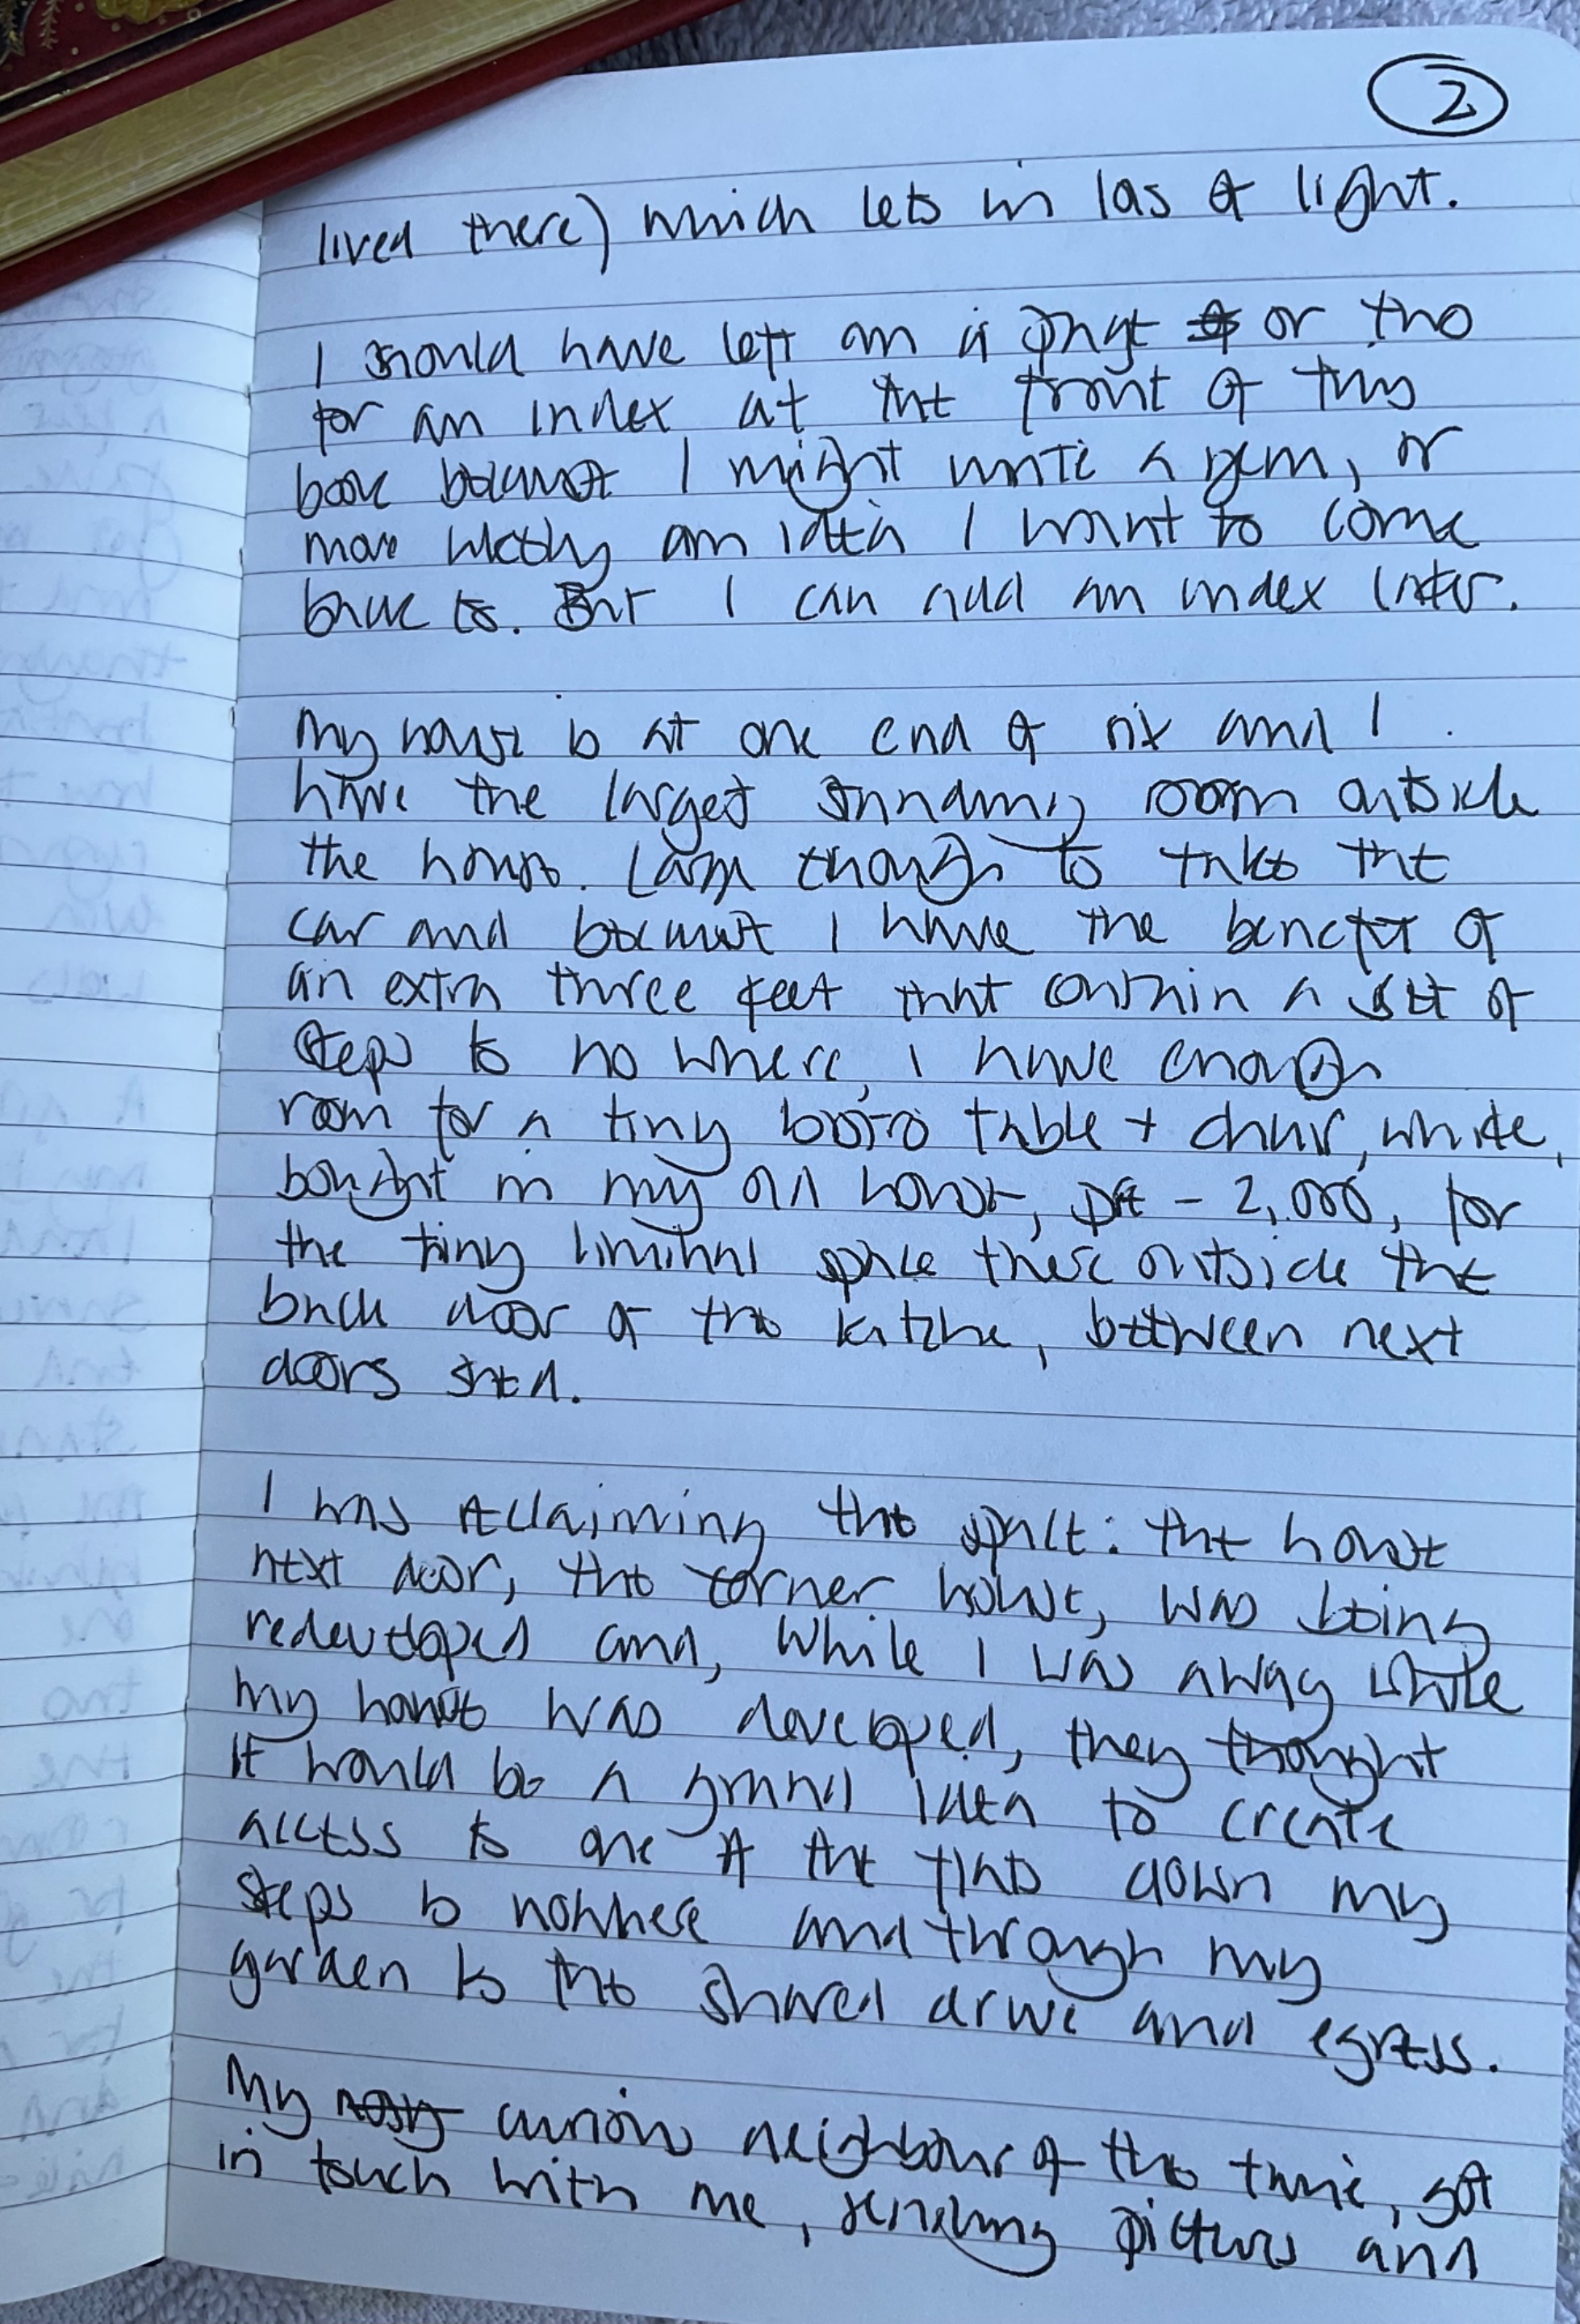 2
lived there) which lets in las of light.
I should have left an a page or two
for an index at the front of this
book because I might write a gem, or
more likely an idea I want to come
back to. But I can add an index later.
My house is at one end of six and I
have the largest standing room outside
the house. Large enough to take the
car and because I have the benefit of
an extra three feet that contain a set of
steps to no where, I have enough
room for a tiny bistro table + chair, white,
bought in my old house, pre - 2,000, for
the tiny liminal space there outside the
back door of the kitche, between next
doors shed.
I was reclaiming the space: the house
next door, the corner house, was being
redeveloped and, while I was away while
my house was developed, they thought
it would be a grand idea to create
access to one of the flats down my
steps to nowhere and through my
garden to the shared drive and egress.
My nosy curious neighbour of the time, got
in touch with me, sending picture and